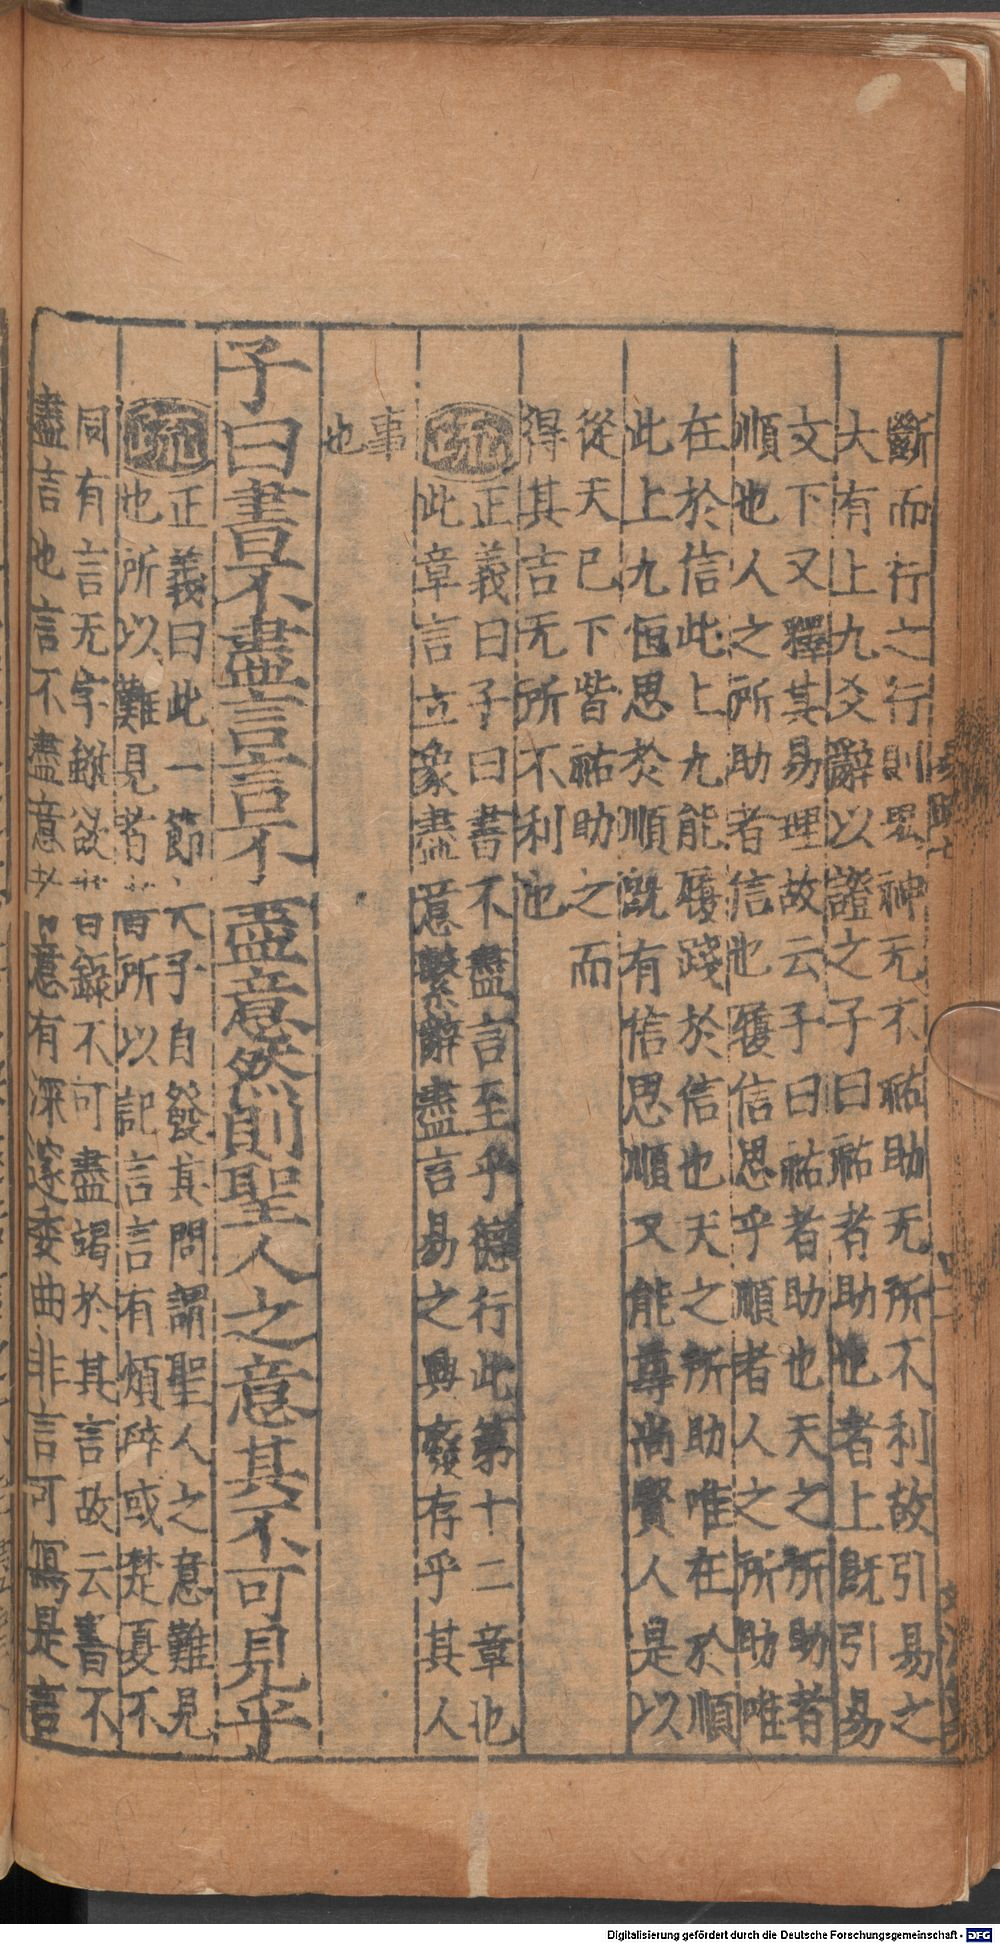 斷而行之行則鬼神无不祐助无所不利故引易之
大有上九爻辭以證之子曰祐者助也者上旣引易
文下又釋其易理故云子曰祐者助也天之所助者
順也人之所助者信也履信思乎順者人之所助唯
在於信此上九能履踐於信也天之所助唯在於順
此上九恒思於順旣有信思順又能尊尚賢人是以
從天已下皆祐助之而
得其吉无所不利也
疏
正義曰子曰書不盡言至乎德行此第十二章也
此章言立象盡意繫辭盡言易之興廢存乎其人
事
也
子曰書不盡言言不盡意然則聖人之意其不可見乎
疏
正義曰此一節夫子自發其問謂聖人之意難見
也所以難見者書所以記言言有煩碎或楚夏不
同有言无字雖欲書錄不可盡竭於其言故云書不
盡言也言不盡意者意有深邃委曲非言可寫是言
Digitalisierung gefördert durch die Deutsche Forschungsgemeinschaft - DFG